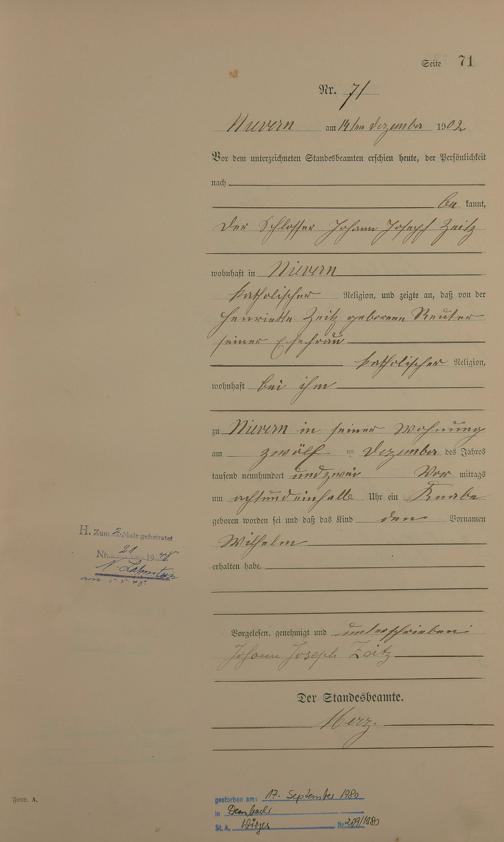 Seite 71
Nr. 71
Nievern am 14ten Dezember 1902
Vor dem unterzeichneten Standesbeamten erschien heute, der Persönlichkeit
nach
be kannt,
der Schlosser Johann Joseph Zeitz
wohnhaft in Nievern
katholischer Religion, und zeigte an, daß von der
Henriette Zeitz geborenen Reuter
seiner Ehefrau
katholischer Religion,
wohnhaft bei ihm
zu Nievern in seiner Wohnung
am zwölf ten Dezember des Jahres
tausend neunhundert und zwei Vor mittags
um acht und einhalb Uhr ein Knabe
geboren worden sei und daß das Kind den Vornamen
Wilhelm
erhalten habe.
H. Zum 2. Male geheiratet
Nr. 21 1948
Vorgelesen, genehmigt und unterschrieben
Johann Joseph Zeitz
Der Standesbeamte.
Merz.
Form. A.
gestorben am: 17. September 1980
in Dernbach
St. A. Wirges Nr. 209/1980